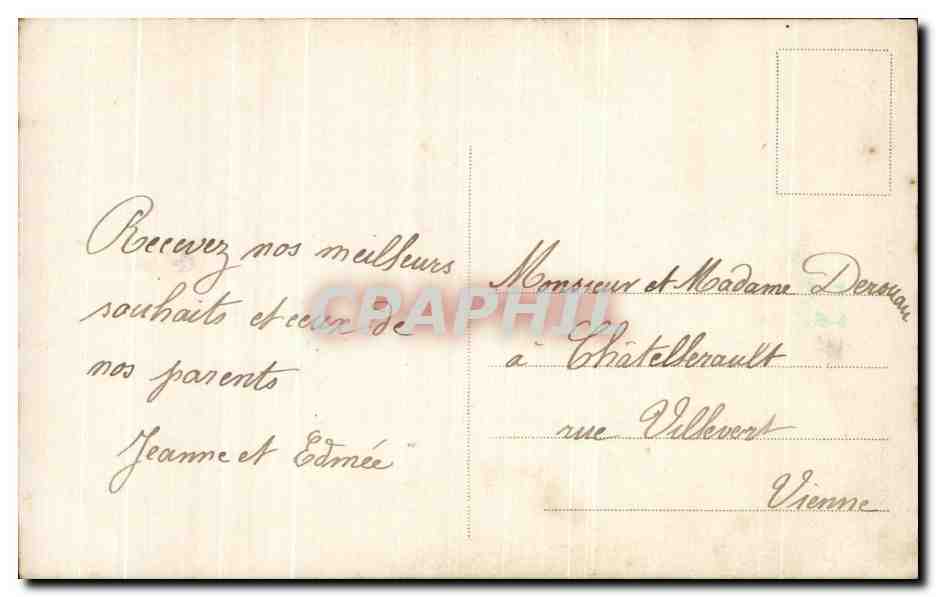 Recevez nos meilleurs
souhaits et ceux de
nos parents
Jeanne et Edmée
Monsieur et Madame Derouau
à Châtellerault
rue Villevert
Vienne
CPAPHIL